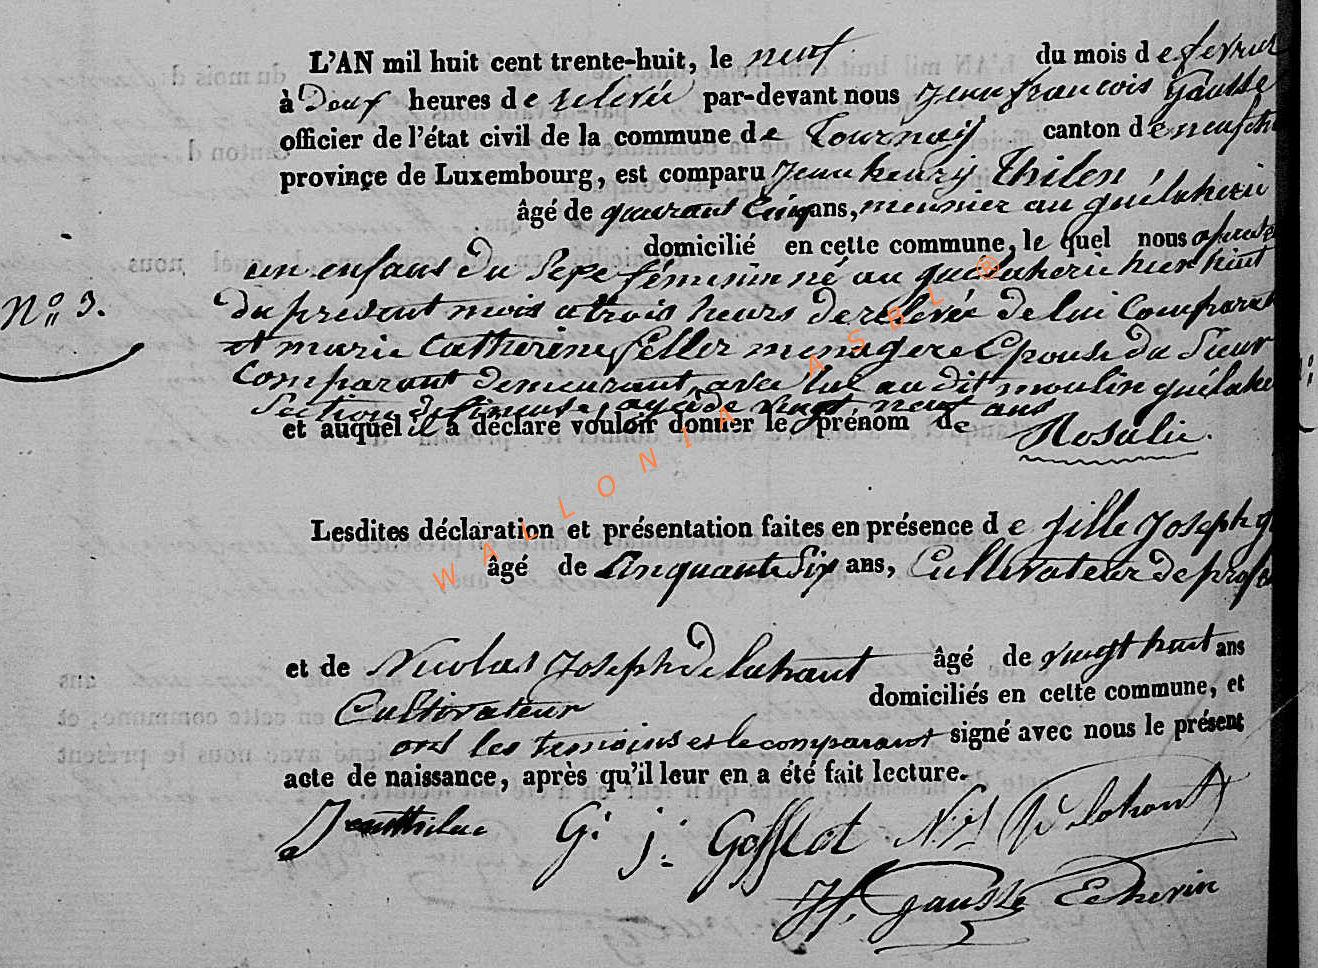 L'AN mil huit cent trente-huit, le neuf du mois de fevrier
à Deux heures de relevée par-devant nous jean françois Gausse
officier de l'état civil de la commune de Tournay canton de neufch
province de Luxembourg, est comparu jean henry Thilen,
âgé de quarant Cinq ans, meunier au
domicilié en cette commune, le quel nous
un enfans du Sexe féminin né au hier huit
N° 3.
du present mois a trois heurs de relevée de lui Comparant
et marie Catherine feller menagere Epouse du Sieur
Comparant demeurant avec lui au dit moulin
Section de agée de vingt neuf ans
et auquel il a déclaré vouloir donner le prénom de Rosalie.
Lesdites déclaration et présentation faites en présence de gille Joseph
âgé de Cinquante Six ans, Cultivateur de
et de Nicolas Joseph Delahaut âgé de vingt huit ans
Cultivateur domiciliés en cette commune, et
ont les temoins et le comparant signé avec nous le présent
acte de naissance, après qu'il leur en a été fait lecture.
G. j. Gofflot
Jf. Gausse Echevin
WALLONIA ASBL ®